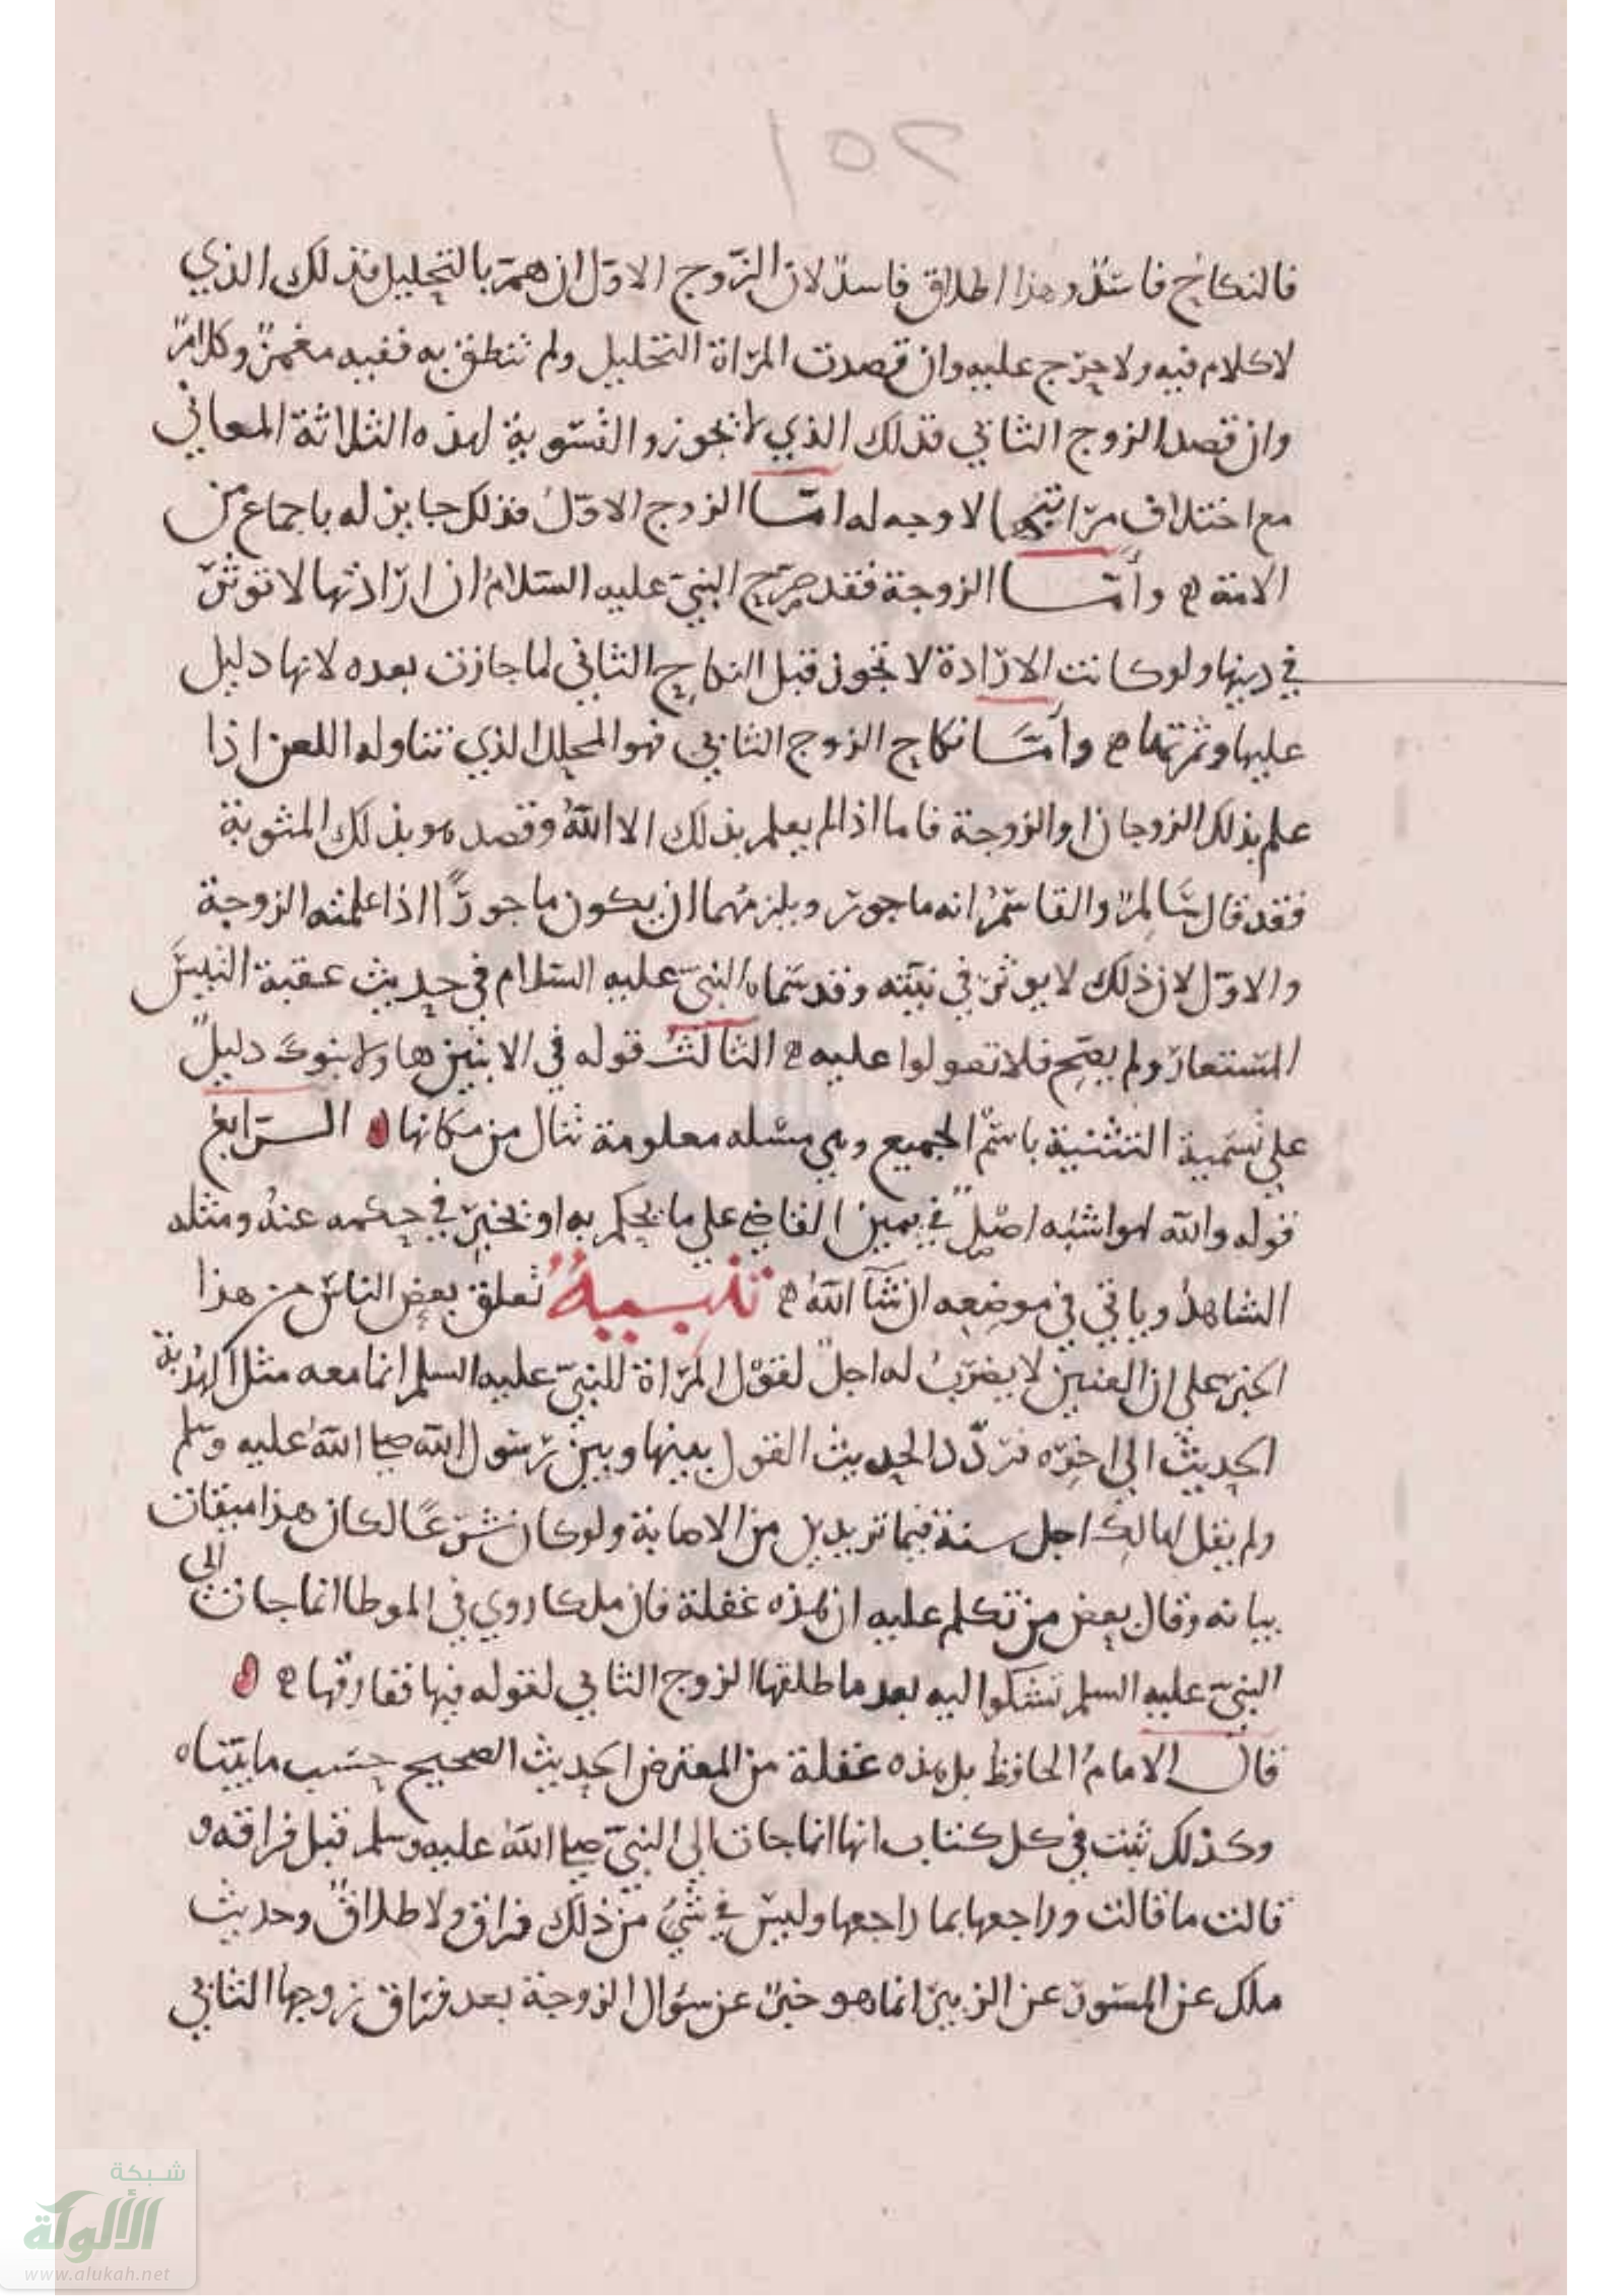 251
فالنكاح فاسد وهذا اطلاق فاسد لان الزوج الاول ان هم بالتحليل فذلك الذي
لا كلام فيه ولا حرج عليه وان قصدت المراة التحليل ولم تنطق به ففيه مغمز وكلام
وان قصد الزوج الثاني فذلك الذي لا تجوز والتسوية لهذه الثلاثة المعاني
مع اختلاف مراتبها لا وجه له امـا الزوج الاول فذلك جايز له باجماع من
الامة ه وأمـا الزوجة فقد صرح النبي عليه السلام ان ارادتها لا توثر
في دينها ولو كانت الارادة لا تجوز قبل النكاح الثاني لما جازت بعده لانها دليل
عليها وثمرتها ه وأمـا نكاح الزوج الثاني فهو المحلل الذي تناوله اللعن اذا
علم بذلك الزوجان او الزوجة فاما اذا لم يعلم بذلك الا الله وقصد هو بذلك المثوبة
فقد قال سالم والقاسم انه ماجور ويلزمهما ان يكون ماجورًا اذا علمته الزوجة
والاول لان ذلك لا يوثر في نيته وقد سماه النبي عليه السلام في حديث عقبة التيس
المستعار ولم يصح فلا تعولوا عليه ه الثالث قوله في الابنين هاولا بنوك دليل
على تسمية التثنية باسم الجميع وهي مسله معلومة تنال من مكانها ه الـرابع
قوله والله لهو اشبه اصل في يمين القاضي على ما يحكم به او يخبر في حكمه عنه ومثله
الشاهد وياتي في موضعه ان شآ الله ه تنبيه تعلق بعض الناس من هذا
الخبر على ان العنين لا يضرب له اجل لقول المراة للنبي عليه السلم انما معه مثل الهدبة
الحديث الى اخره فردد الحديث القول بينها وبين رسول الله صلى الله عليه وسلم
ولم يقل لها لك اجل سنة فيما تريدين من الاصابة ولو كان شرعًا لكان هذا ميقات
بيانه وقال بعض من تكلم عليه ان هذه غفلة فان ملكا روي في الموطا انما جات الى
النبي عليه السلم تشكوا اليه بعد ما طلقها الزوج الثاني لقوله فيها ففارقها ه
قال الامام الحافظ بل هذه غفلة من المعترض الحديث الصحيح حسب ما بيناه
وكذلك ثبت في كل كتاب انها انما جات الى النبي صلى الله عليه وسلم قبل فراقه و
قالت ما قالت وراجعها بما راجعها وليس في شيء من ذلك فراق ولا طلاق وحديث
ملك عن المسور عن الزبير انما هو خبر عن سؤال الزوجة بعد فراق زوجها الثاني
شبكة
الألوكة
www.alukah.net